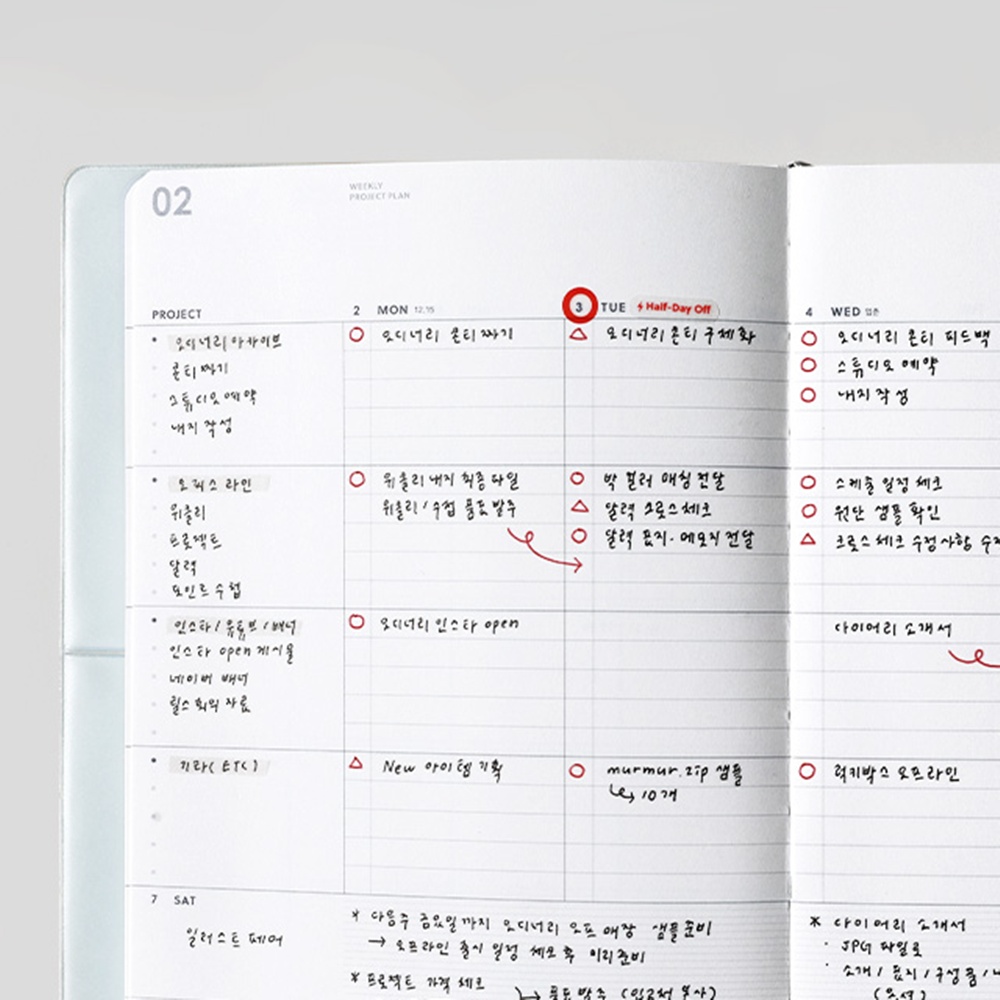 02
WEEKLY
PROJECT PLAN
PROJECT
2 MON 12.15
3 TUE Half-Day Off
4 WED 입춘
오디너리 아카이브
콘티 짜기
스튜디오 예약
내지 작성
오디너리 콘티 짜기
오디너리 콘티 구체화
오디너리 콘티 피드백
스튜디오 예약
내지 작성
오피스 라인
위클리
프로젝트
달력
포인트 수첩
위클리 내지 최종 파일
위클리/수첩 품표 발주
박 컬러 매칭 전달
달력 크로스 체크
달력 표지·메모지 전달
스케줄 일정 체크
원단 샘플 확인
크로스 체크 수정사항
인스타/유튜브/배너
인스타 open 게시물
네이버 배너
릴스 회의 자료
오디너리 인스타 open
다이어리 소개서
기타(ETC)
New 아이템 기획
murmur.zip 샘플
10개
럭키박스 오프라인
7 SAT
일러스트 페어
* 다음주 금요일까지 오디너리 오프 매장 샘플 준비
→ 오프라인 출시 일정 체크 후 미리 준비
* 프로젝트 가격 체크
품표 발주
* 다이어리 소개서
· JPG 파일로
· 소개/표지/구성품/